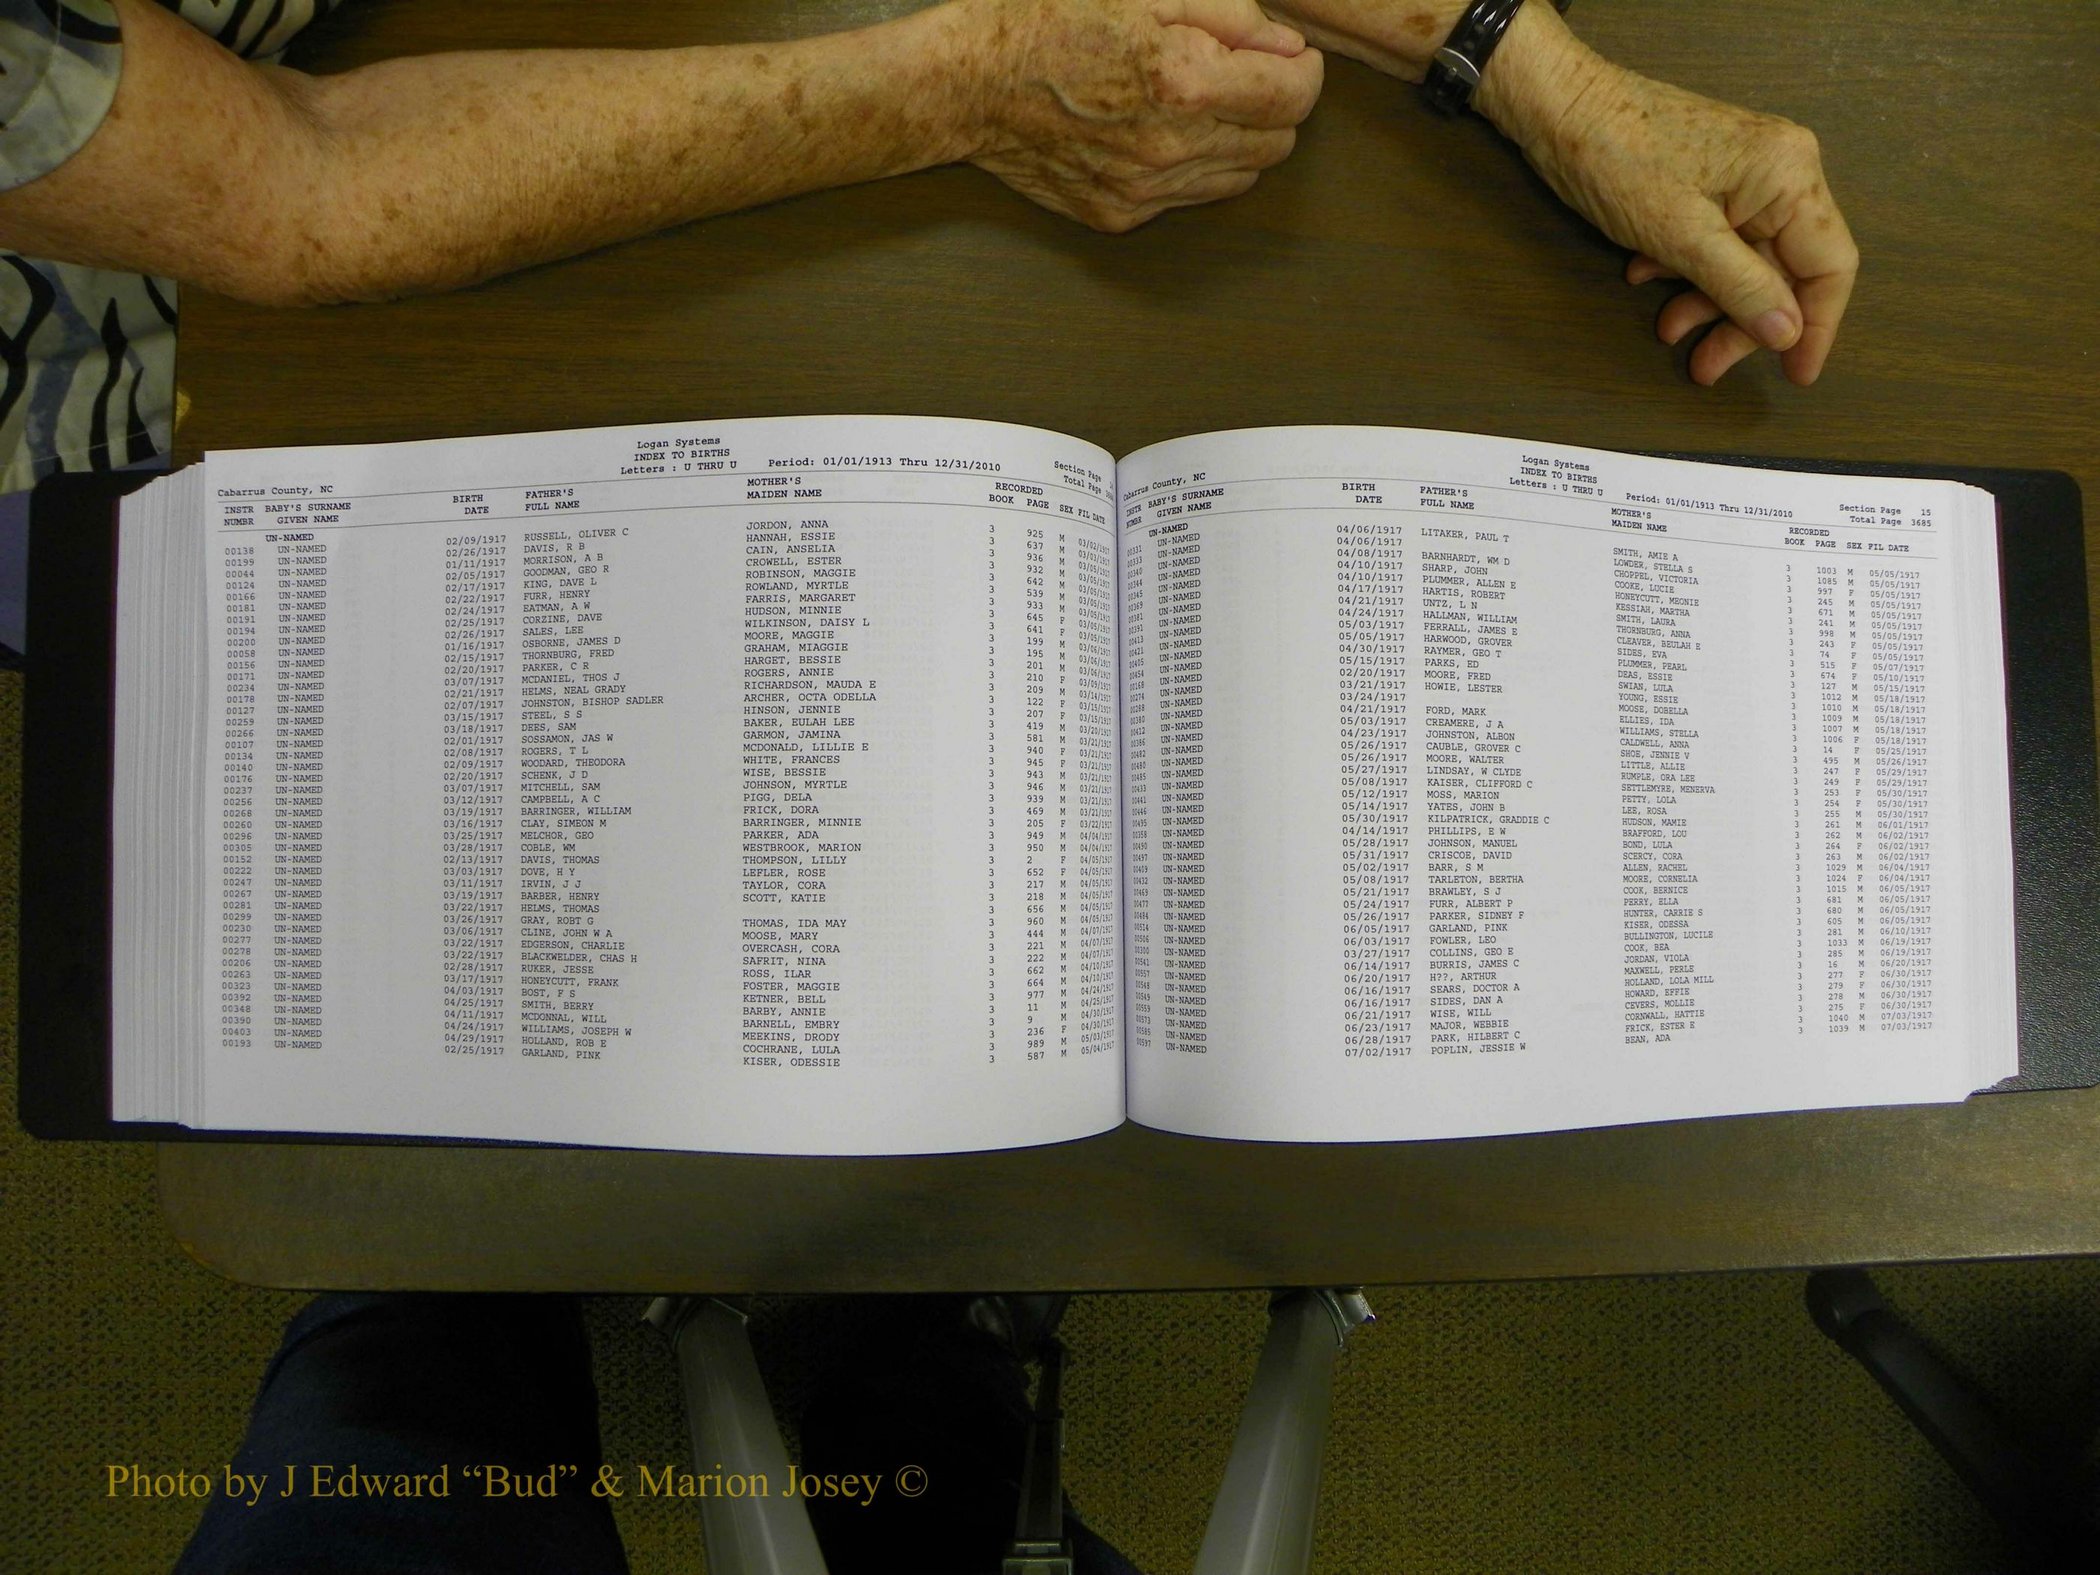 Logan Systems
INDEX TO BIRTHS
Letters : U THRU U Period: 01/01/1913 Thru 12/31/2010
Cabarrus County, NC Section Page
Total Page
INSTR NUMBR BABY'S SURNAME GIVEN NAME BIRTH DATE FATHER'S FULL NAME MOTHER'S MAIDEN NAME RECORDED BOOK PAGE SEX FIL DATE
UN-NAMED
00138 UN-NAMED 02/09/1917 RUSSELL, OLIVER C JORDON, ANNA 3 925 M 03/02/1917
00199 UN-NAMED 02/26/1917 DAVIS, R B HANNAH, ESSIE 3 637 M 03/03/1917
00044 UN-NAMED 01/11/1917 MORRISON, A B CAIN, ANSELIA 3 936 M 03/05/1917
00124 UN-NAMED 02/05/1917 GOODMAN, GEO R CROWELL, ESTER 3 932 M 03/05/1917
00166 UN-NAMED 02/17/1917 KING, DAVE L ROBINSON, MAGGIE 3 642 M 03/05/1917
00181 UN-NAMED 02/22/1917 FURR, HENRY ROWLAND, MYRTLE 3 539 M 03/05/1917
00191 UN-NAMED 02/24/1917 EATMAN, A W FARRIS, MARGARET 3 933 M 03/05/1917
00194 UN-NAMED 02/25/1917 CORZINE, DAVE HUDSON, MINNIE 3 645 F 03/05/1917
00200 UN-NAMED 02/26/1917 SALES, LEE WILKINSON, DAISY L 3 641 F 03/05/1917
00058 UN-NAMED 01/16/1917 OSBORNE, JAMES D MOORE, MAGGIE 3 199 M 03/06/1917
00156 UN-NAMED 02/15/1917 THORNBURG, FRED GRAHAM, MIAGGIE 3 195 M 03/06/1917
00171 UN-NAMED 02/20/1917 PARKER, C R HARGET, BESSIE 3 201 M 03/06/1917
00234 UN-NAMED 03/07/1917 MCDANIEL, THOS J ROGERS, ANNIE 3 210 F 03/09/1917
00178 UN-NAMED 02/21/1917 HELMS, NEAL GRADY RICHARDSON, MAUDA E 3 209 M 03/14/1917
00127 UN-NAMED 02/07/1917 JOHNSTON, BISHOP SADLER ARCHER, OCTA ODELLA 3 122 F 03/15/1917
00259 UN-NAMED 03/15/1917 STEEL, S S HINSON, JENNIE 3 207 F 03/15/1917
00266 UN-NAMED 03/18/1917 DEES, SAM BAKER, EULAH LEE 3 419 M 03/20/1917
00107 UN-NAMED 02/01/1917 SOSSAMON, JAS W GARMON, JAMINA 3 581 M 03/21/1917
00134 UN-NAMED 02/08/1917 ROGERS, T L MCDONALD, LILLIE E 3 940 F 03/21/1917
00140 UN-NAMED 02/09/1917 WOODARD, THEODORA WHITE, FRANCES 3 945 F 03/21/1917
00176 UN-NAMED 02/20/1917 SCHENK, J D WISE, BESSIE 3 943 M 03/21/1917
00237 UN-NAMED 03/07/1917 MITCHELL, SAM JOHNSON, MYRTLE 3 946 M 03/21/1917
00256 UN-NAMED 03/12/1917 CAMPBELL, A C PIGG, DELA 3 939 M 03/21/1917
00268 UN-NAMED 03/19/1917 BARRINGER, WILLIAM FRICK, DORA 3 469 M 03/21/1917
00260 UN-NAMED 03/16/1917 CLAY, SIMEON M BARRINGER, MINNIE 3 205 F 03/22/1917
00296 UN-NAMED 03/25/1917 MELCHOR, GEO PARKER, ADA 3 949 M 04/04/1917
00305 UN-NAMED 03/28/1917 COBLE, WM WESTBROOK, MARION 3 950 M 04/04/1917
00152 UN-NAMED 02/13/1917 DAVIS, THOMAS THOMPSON, LILLY 3 2 F 04/05/1917
00222 UN-NAMED 03/03/1917 DOVE, H Y LEFLER, ROSE 3 652 F 04/05/1917
00247 UN-NAMED 03/11/1917 IRVIN, J J TAYLOR, CORA 3 217 M 04/05/1917
00267 UN-NAMED 03/19/1917 BARBER, HENRY SCOTT, KATIE 3 218 M 04/05/1917
00281 UN-NAMED 03/22/1917 HELMS, THOMAS 3 656 M 04/05/1917
00299 UN-NAMED 03/26/1917 GRAY, ROBT G THOMAS, IDA MAY 3 960 M 04/05/1917
00230 UN-NAMED 03/06/1917 CLINE, JOHN W A MOOSE, MARY 3 444 M 04/07/1917
00277 UN-NAMED 03/22/1917 EDGERSON, CHARLIE OVERCASH, CORA 3 221 M 04/07/1917
00278 UN-NAMED 03/22/1917 BLACKWELDER, CHAS H SAFRIT, NINA 3 222 M 04/07/1917
00206 UN-NAMED 02/28/1917 RUKER, JESSE ROSS, ILAR 3 662 M 04/10/1917
00263 UN-NAMED 03/17/1917 HONEYCUTT, FRANK FOSTER, MAGGIE 3 664 M 04/10/1917
00323 UN-NAMED 04/03/1917 BOST, F S KETNER, BELL 3 977 M 04/24/1917
00392 UN-NAMED 04/25/1917 SMITH, BERRY BARBY, ANNIE 3 11 M 04/25/1917
00348 UN-NAMED 04/11/1917 MCDONNAL, WILL BARNELL, EMBRY 3 9 M 04/30/1917
00390 UN-NAMED 04/24/1917 WILLIAMS, JOSEPH W MEEKINS, DRODY 3 236 F 04/30/1917
00403 UN-NAMED 04/29/1917 HOLLAND, ROB E COCHRANE, LULA 3 989 M 05/03/1917
00193 UN-NAMED 02/25/1917 GARLAND, PINK KISER, ODESSIE 3 587 M 05/04/1917
Logan Systems
INDEX TO BIRTHS
Letters : U THRU U Period: 01/01/1913 Thru 12/31/2010
Cabarrus County, NC Section Page 15
Total Page 3685
INSTR NUMBR BABY'S SURNAME GIVEN NAME BIRTH DATE FATHER'S FULL NAME MOTHER'S MAIDEN NAME RECORDED BOOK PAGE SEX FIL DATE
UN-NAMED
00331 UN-NAMED 04/06/1917 LITAKER, PAUL T SMITH, AMIE A 3 1003 M 05/05/1917
00333 UN-NAMED 04/06/1917 LOWDER, STELLA S 3 1085 M 05/05/1917
00340 UN-NAMED 04/08/1917 BARNHARDT, WM D CHOPPEL, VICTORIA 3 997 F 05/05/1917
00344 UN-NAMED 04/10/1917 SHARP, JOHN COOKE, LUCIE 3 245 M 05/05/1917
00345 UN-NAMED 04/10/1917 PLUMMER, ALLEN E HONEYCUTT, MEONIE 3 671 M 05/05/1917
00369 UN-NAMED 04/17/1917 HARTIS, ROBERT KESSIAH, MARTHA 3 241 M 05/05/1917
00381 UN-NAMED 04/21/1917 UNTZ, L N SMITH, LAURA 3 998 M 05/05/1917
00391 UN-NAMED 04/24/1917 HALLMAN, WILLIAM THORNBURG, ANNA 3 243 F 05/05/1917
00413 UN-NAMED 05/03/1917 FERRALL, JAMES E CLEAVER, BEULAH E 3 74 F 05/05/1917
00421 UN-NAMED 05/05/1917 HARWOOD, GROVER SIDES, EVA 3 515 F 05/07/1917
00405 UN-NAMED 04/30/1917 RAYMER, GEO T PLUMMER, PEARL 3 674 F 05/10/1917
00454 UN-NAMED 05/15/1917 PARKS, ED DEAS, ESSIE 3 127 M 05/15/1917
00168 UN-NAMED 02/20/1917 MOORE, FRED SWIAN, LULA 3 1012 M 05/18/1917
00274 UN-NAMED 03/21/1917 HOWIE, LESTER YOUNG, ESSIE 3 1010 M 05/18/1917
00288 UN-NAMED 03/24/1917 MOOSE, DOBELLA 3 1009 M 05/18/1917
00380 UN-NAMED 04/21/1917 FORD, MARK ELLIES, IDA 3 1007 M 05/18/1917
00412 UN-NAMED 05/03/1917 CREAMERE, J A WILLIAMS, STELLA 3 1006 F 05/18/1917
00386 UN-NAMED 04/23/1917 JOHNSTON, ALBON CALDWELL, ANNA 3 14 F 05/25/1917
00482 UN-NAMED 05/26/1917 CAUBLE, GROVER C SHOE, JENNIE V 3 495 M 05/26/1917
00480 UN-NAMED 05/26/1917 MOORE, WALTER LITTLE, ALLIE 3 247 F 05/29/1917
00485 UN-NAMED 05/27/1917 LINDSAY, W CLYDE RUMPLE, ORA LEE 3 249 F 05/29/1917
00433 UN-NAMED 05/08/1917 KAISER, CLIFFORD C SETTLEMYRE, MENERVA 3 253 F 05/30/1917
00441 UN-NAMED 05/12/1917 MOSS, MARION PETTY, LOLA 3 254 F 05/30/1917
00446 UN-NAMED 05/14/1917 YATES, JOHN B LEE, ROSA 3 255 M 05/30/1917
00495 UN-NAMED 05/30/1917 KILPATRICK, GRADDIE C HUDSON, MAMIE 3 261 M 06/01/1917
00358 UN-NAMED 04/14/1917 PHILLIPS, E W BRAFFORD, LOU 3 262 M 06/02/1917
00490 UN-NAMED 05/28/1917 JOHNSON, MANUEL BOND, LULA 3 264 F 06/02/1917
00497 UN-NAMED 05/31/1917 CRISCOE, DAVID SCERCY, CORA 3 263 M 06/02/1917
00409 UN-NAMED 05/02/1917 BARR, S M ALLEN, RACHEL 3 1029 M 06/04/1917
00432 UN-NAMED 05/08/1917 TARLETON, BERTHA MOORE, CORNELIA 3 1024 F 06/04/1917
00469 UN-NAMED 05/21/1917 BRAWLEY, S J COOK, BERNICE 3 1015 M 06/05/1917
00477 UN-NAMED 05/24/1917 FURR, ALBERT P PERRY, ELLA 3 681 M 06/05/1917
00484 UN-NAMED 05/26/1917 PARKER, SIDNEY F HUNTER, CARRIE S 3 680 M 06/05/1917
00514 UN-NAMED 06/05/1917 GARLAND, PINK KISER, ODESSA 3 605 M 06/05/1917
00506 UN-NAMED 06/03/1917 FOWLER, LEO BULLINGTON, LUCILE 3 281 M 06/10/1917
00300 UN-NAMED 03/27/1917 COLLINS, GEO E COOK, BEA 3 1033 M 06/19/1917
00541 UN-NAMED 06/14/1917 BURRIS, JAMES C JORDAN, VIOLA 3 285 M 06/19/1917
00557 UN-NAMED 06/20/1917 H??, ARTHUR MAXWELL, PERLE 3 16 M 06/20/1917
00548 UN-NAMED 06/16/1917 SEARS, DOCTOR A HOLLAND, LOLA MILL 3 277 F 06/30/1917
00549 UN-NAMED 06/16/1917 SIDES, DAN A HOWARD, EFFIE 3 279 F 06/30/1917
00559 UN-NAMED 06/21/1917 WISE, WILL CEVERS, MOLLIE 3 278 M 06/30/1917
00573 UN-NAMED 06/23/1917 MAJOR, WEBBIE CORNWALL, HATTIE 3 275 F 06/30/1917
00585 UN-NAMED 06/28/1917 PARK, HILBERT C FRICK, ESTER E 3 1040 M 07/03/1917
00597 UN-NAMED 07/02/1917 POPLIN, JESSIE W BEAN, ADA 3 1039 M 07/03/1917
Photo by J Edward “Bud” & Marion Josey ©